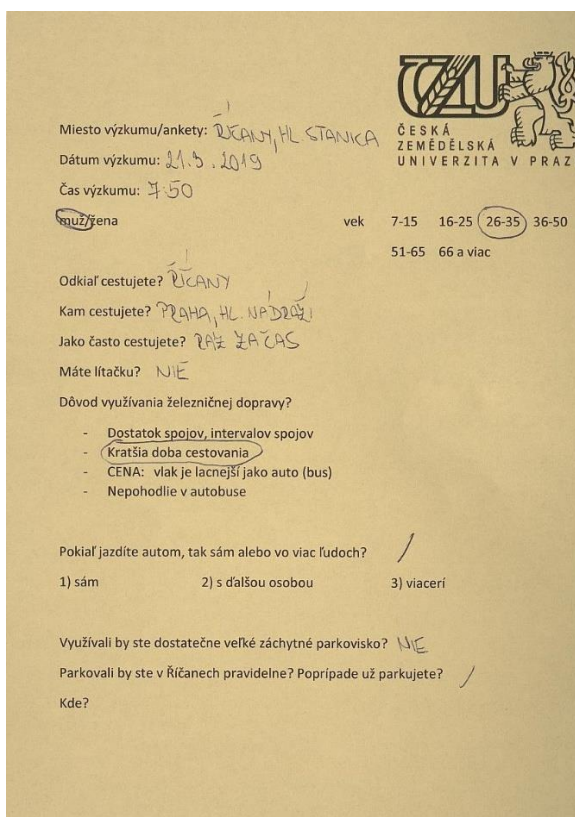 ČZU
ČESKÁ
ZEMĚDĚLSKÁ
UNIVERZITA V PRAZ
Miesto výzkumu/ankety: ŘÍČANY, HL. STANICA
Dátum výzkumu: 21.3.2019
Čas výzkumu: 7:50
muž/žena vek 7-15 16-25 26-35 36-50
51-65 66 a viac
Odkiaľ cestujete? ŘÍČANY
Kam cestujete? PRAHA, HL. NÁDRAŽÍ
Jako často cestujete? RAZ ZA ČAS
Máte lítačku? NIE
Dôvod využívania železničnej dopravy?
- Dostatok spojov, intervalov spojov
- Kratšia doba cestovania
- CENA: vlak je lacnejší jako auto (bus)
- Nepohodlie v autobuse
Pokiaľ jazdíte autom, tak sám alebo vo viac ľudoch? /
1) sám 2) s ďalšou osobou 3) viacerí
Využívali by ste dostatečne veľké záchytné parkovisko? NIE
Parkovali by ste v Říčanech pravidelne? Poprípade už parkujete? /
Kde?